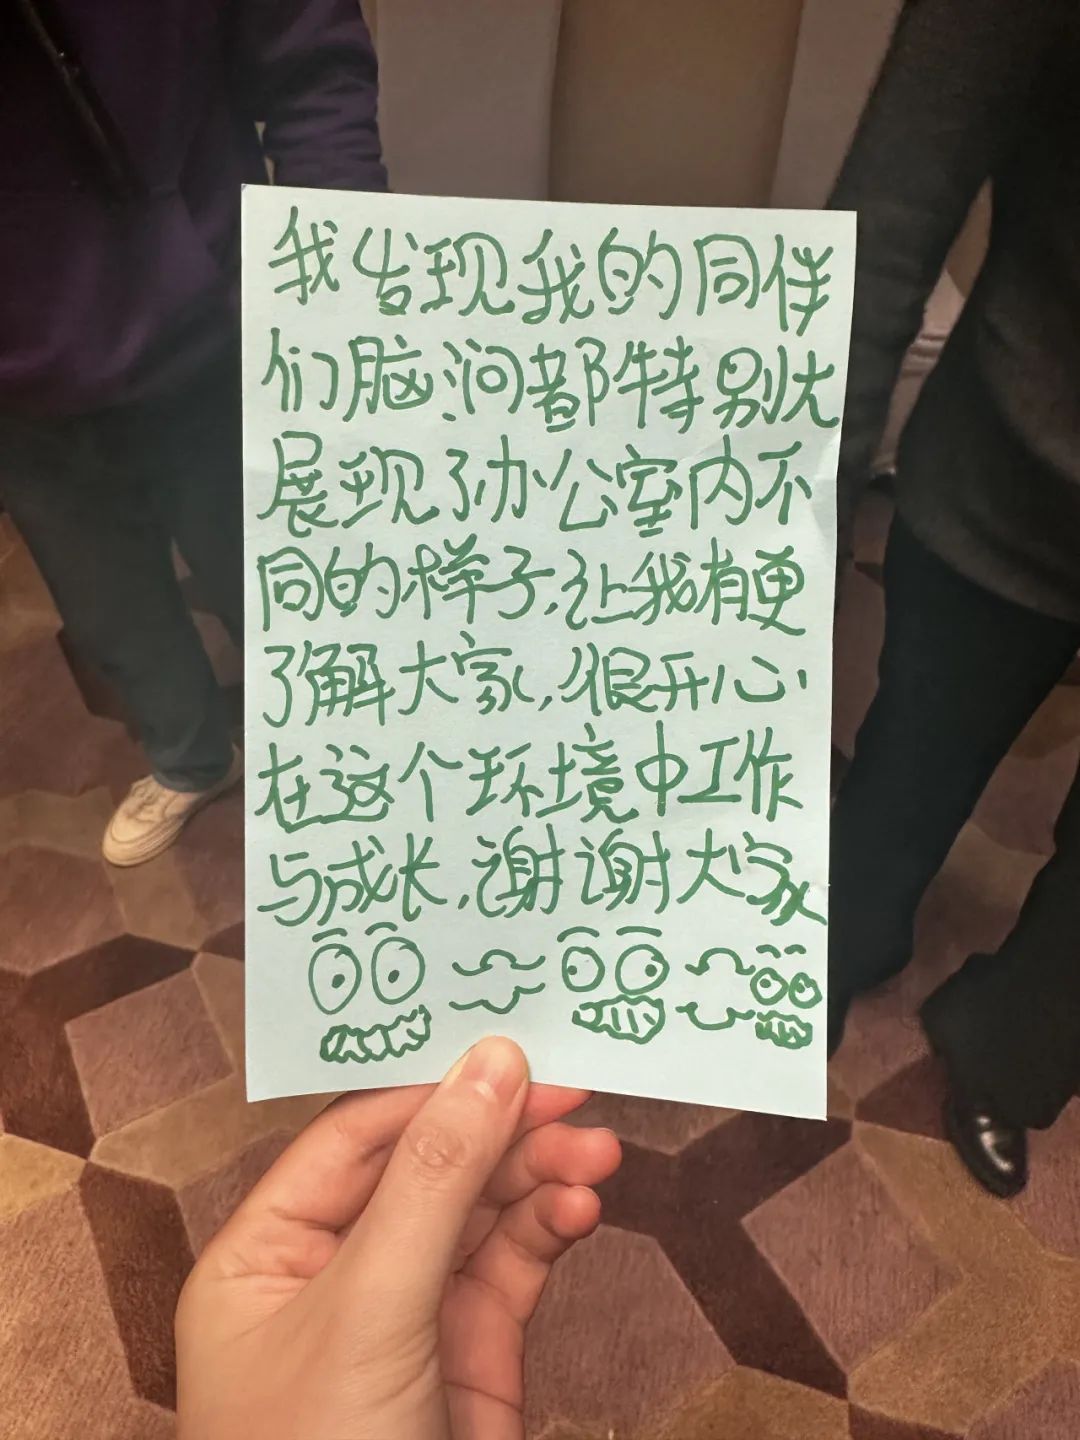 我发现我的同伴
们脑洞都特别大
展现了办公室内不
同的样子,让我有更
了解大家,很开心
在这个环境中工作
与成长,谢谢大家